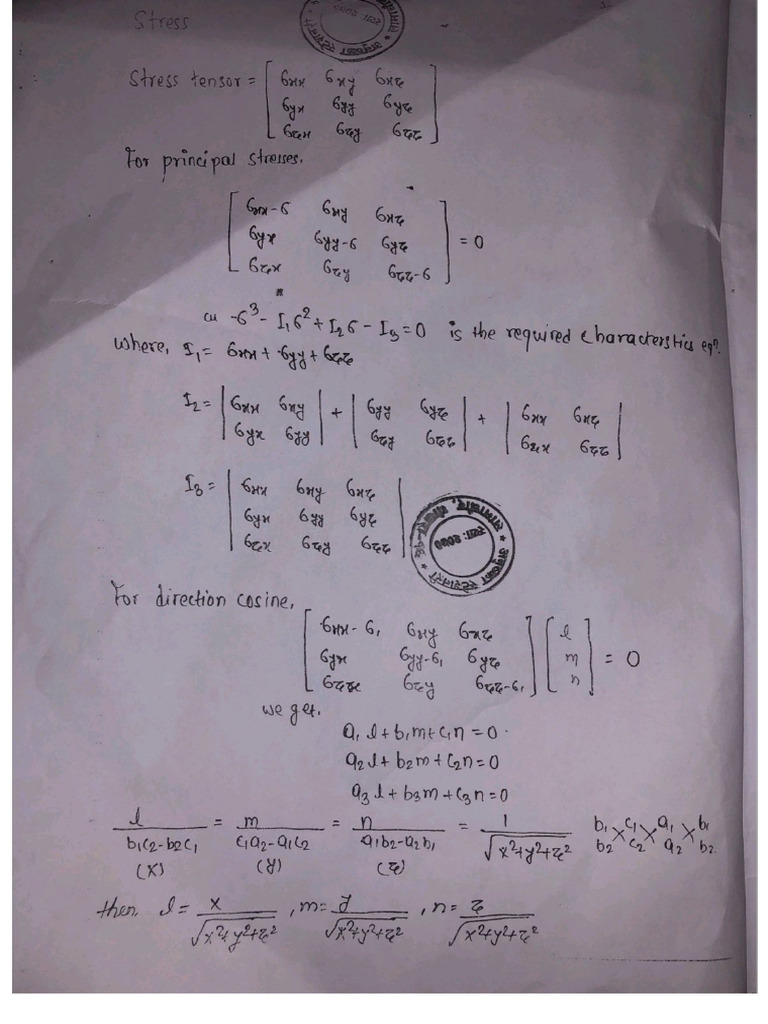 Stress
Stress tensor = [ σxx σxy σxz
σyx σyy σyz
σzx σzy σzz ]
For principal stresses.
[ σxx-σ σxy σxz
σyx σyy-σ σyz
σzx σzy σzz-σ ] = 0
-σ³ - I₁σ² + I₂σ - I₃ = 0 is the required characterstics eqⁿ.
where, I₁ = σxx + σyy + σzz
I₂ = | σxx σxy | + | σyy σyz | + | σxx σxz |
| σyx σyy | | σzy σzz | | σzx σzz |
I₃ = | σxx σxy σxz |
| σyx σyy σyz |
| σzx σzy σzz |
For direction cosine,
[ σxx-σ₁ σxy σxz ] [ l ]
[ σyx σyy-σ₁ σyz ] [ m ] = 0
[ σzx σzy σzz-σ₁ ] [ n ]
we get,
a₁l + b₁m + c₁n = 0
a₂l + b₂m + c₂n = 0
a₃l + b₃m + c₃n = 0
l/(b₁c₂-b₂c₁) = m/(c₁a₂-a₁c₂) = n/(a₁b₂-a₂b₁) = 1/√(x²+y²+z²) b₁ c₁ a₁ b₁
(x) (y) (z) b₂ c₂ a₂ b₂
then l = x/√(x²+y²+z²), m = y/√(x²+y²+z²), n = z/√(x²+y²+z²)